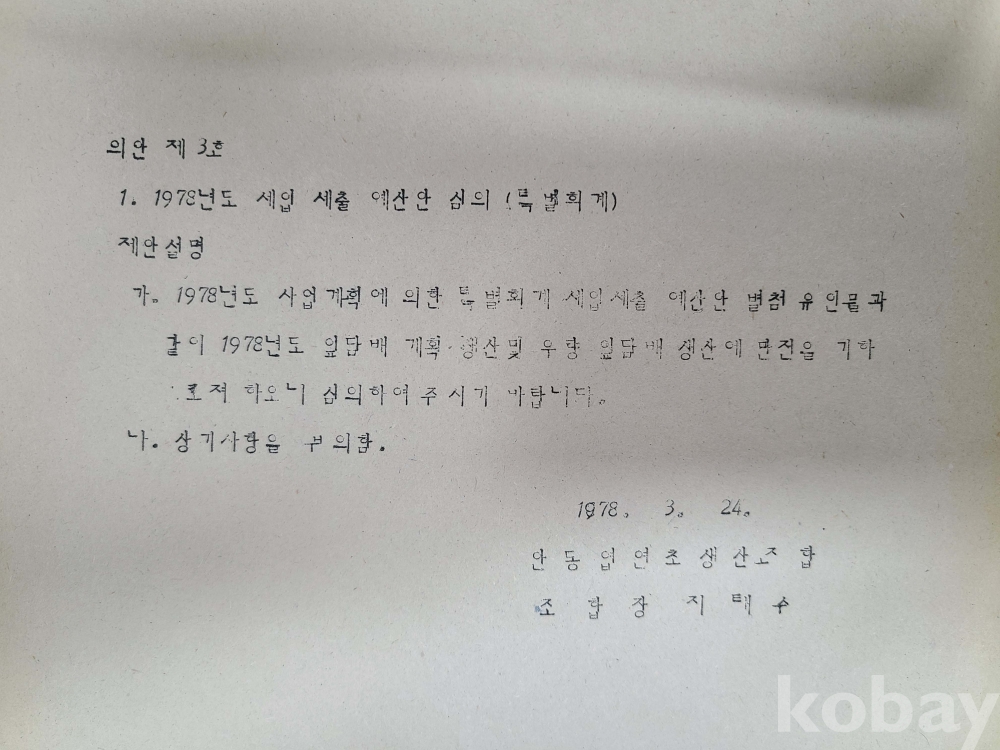 의안 제 3호
1. 1978년도 세입 세출 예산안 심의 (특별회계)
제안설명
가. 1978년도 사업계획에 의한 특별회계 세입세출 예산안 별첨 유인물과
같이 1978년도 잎담배 계획 생산및 우량 잎담배 생산에 만전을 기하
로저 하오니 심의하여 주시기 바랍니다.
나. 상기사항을 부의함.
1978. 3. 24.
안동엽연초생산조합
조합장 지태수
kobay